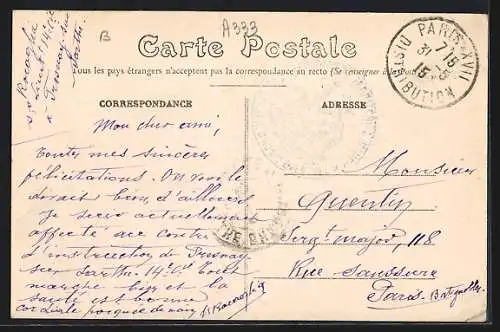 B
A333
Carte Postale
Tous les pays étrangers n'acceptent pas la correspondance au recto (Se renseigner à la
CORRESPONDANCE
ADRESSE
PARIS XVII
7-15
31-5
15
DISTRIBUTION
Rocaglia
à Fresnay sur
Sarthe
Mon cher ami,
toutes mes sincères
félicitations. On vous le
devait bien, d'ailleurs
Je suis actuellement
affecté au centre
d'instruction de Fresnay
sur Sarthe 14e Cie Tout
marche bien et la
santé est bonne
cordiale poignée de main
Monsieur
Quentin
Sergt major, 118
Rue Saussure
Paris-Batignolles